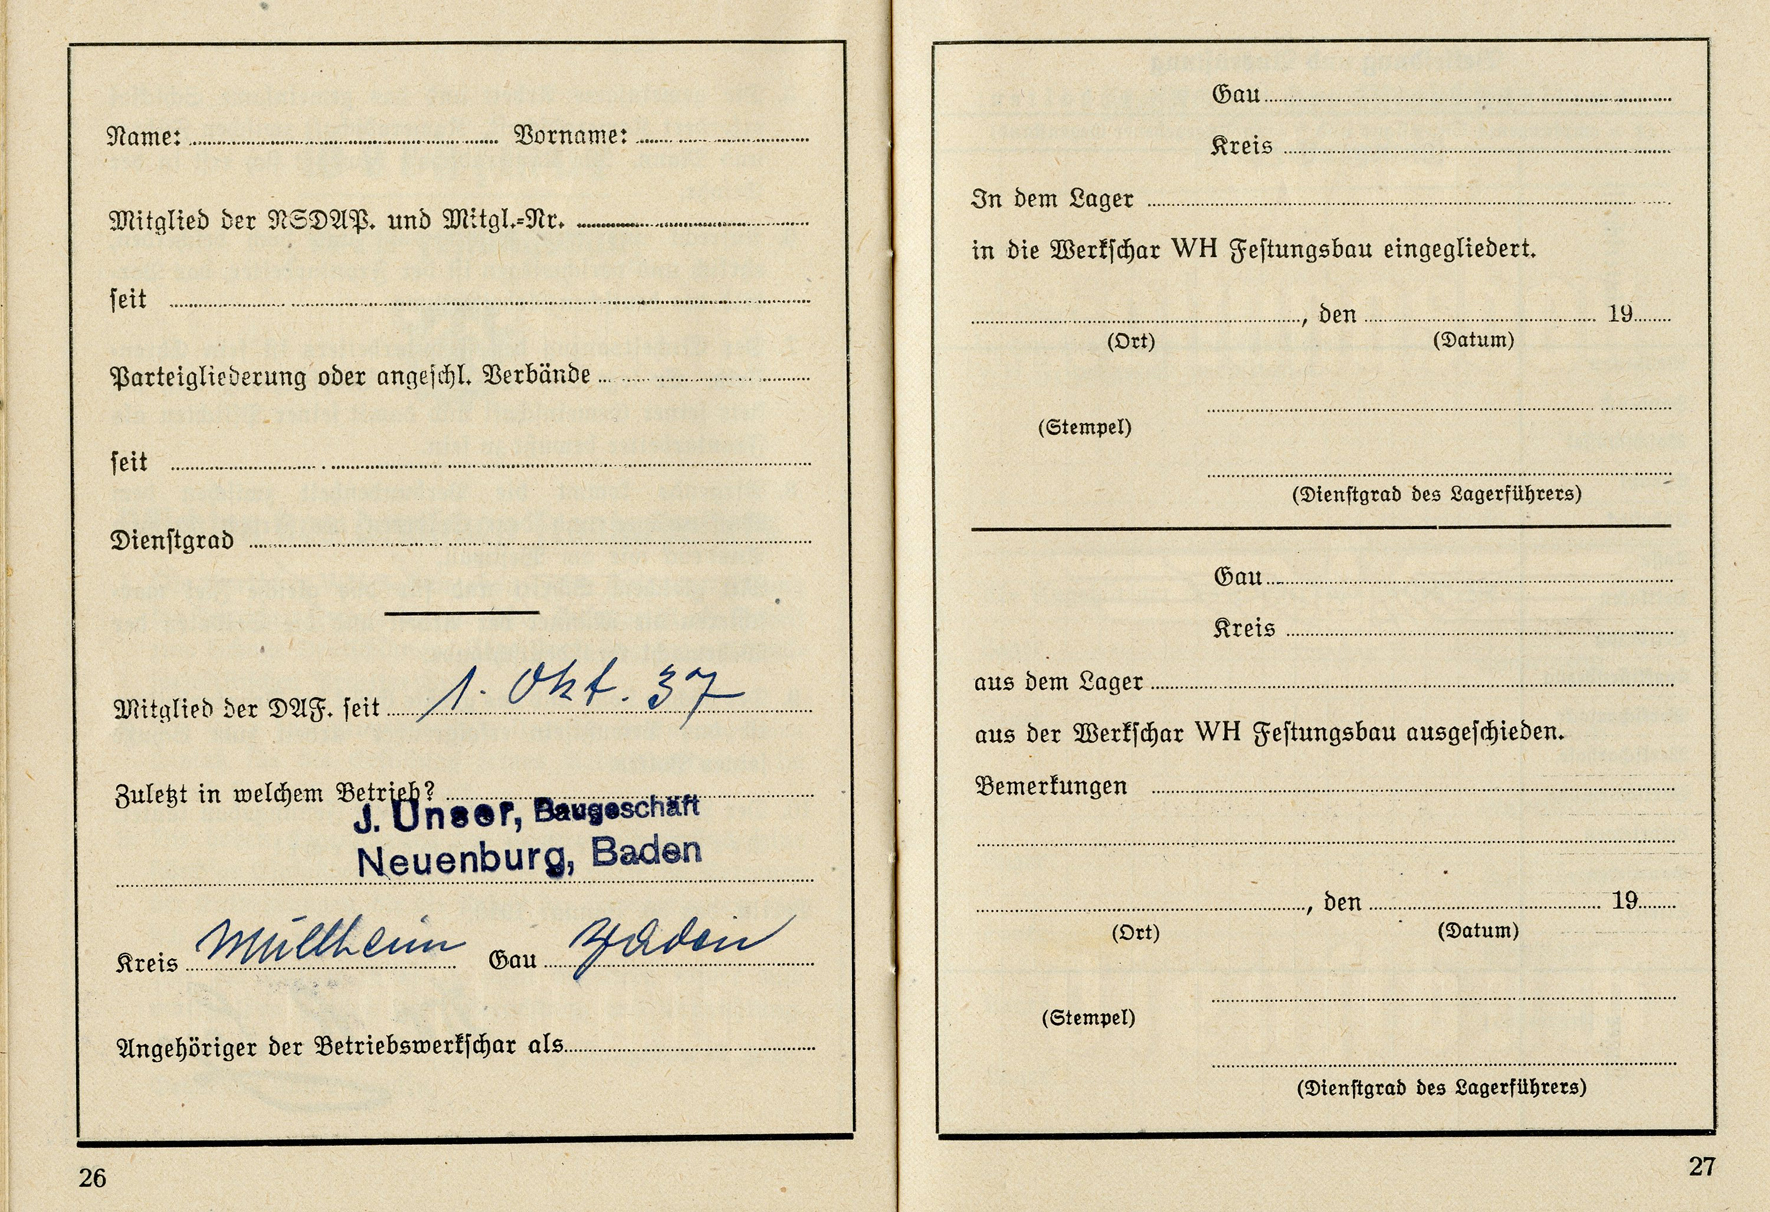 Name: Vorname:
Mitglied der NSDAP. und Mitgl.-Nr.
seit
Parteigliederung oder angeschl. Verbände
seit
Dienstgrad
Mitglied der DAF. seit 1. Okt. 37
Zuletzt in welchem Betrieb?
J. Unser, Baugeschäft
Neuenburg, Baden
Kreis Müllheim Gau Baden
Angehöriger der Betriebswerkschar als
26
Gau
Kreis
In dem Lager
in die Werkschar WH Festungsbau eingegliedert.
, den 19
(Ort) (Datum)
(Stempel)
(Dienstgrad des Lagerführers)
Gau
Kreis
aus dem Lager
aus der Werkschar WH Festungsbau ausgeschieden.
Bemerkungen
, den 19
(Ort) (Datum)
(Stempel)
(Dienstgrad des Lagerführers)
27